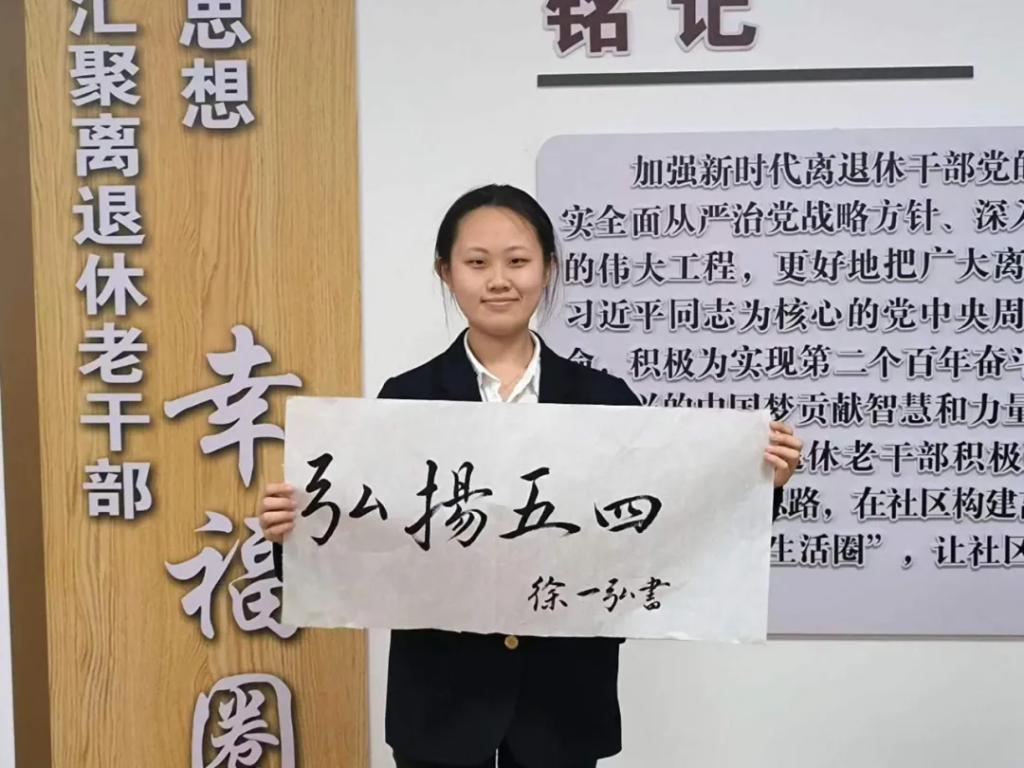 思想
汇聚离退休老干部
幸福圈
铭记
加强新时代离退休干部党的
实全面从严治党战略方针、深入
的伟大工程，更好地把广大离
习近平同志为核心的党中央周
命，积极为实现第二个百年奋斗
的中国梦贡献智慧和力量
休老干部积极
思路，在社区构建
生活圈”，让社区
弘揚五四
徐一弘書